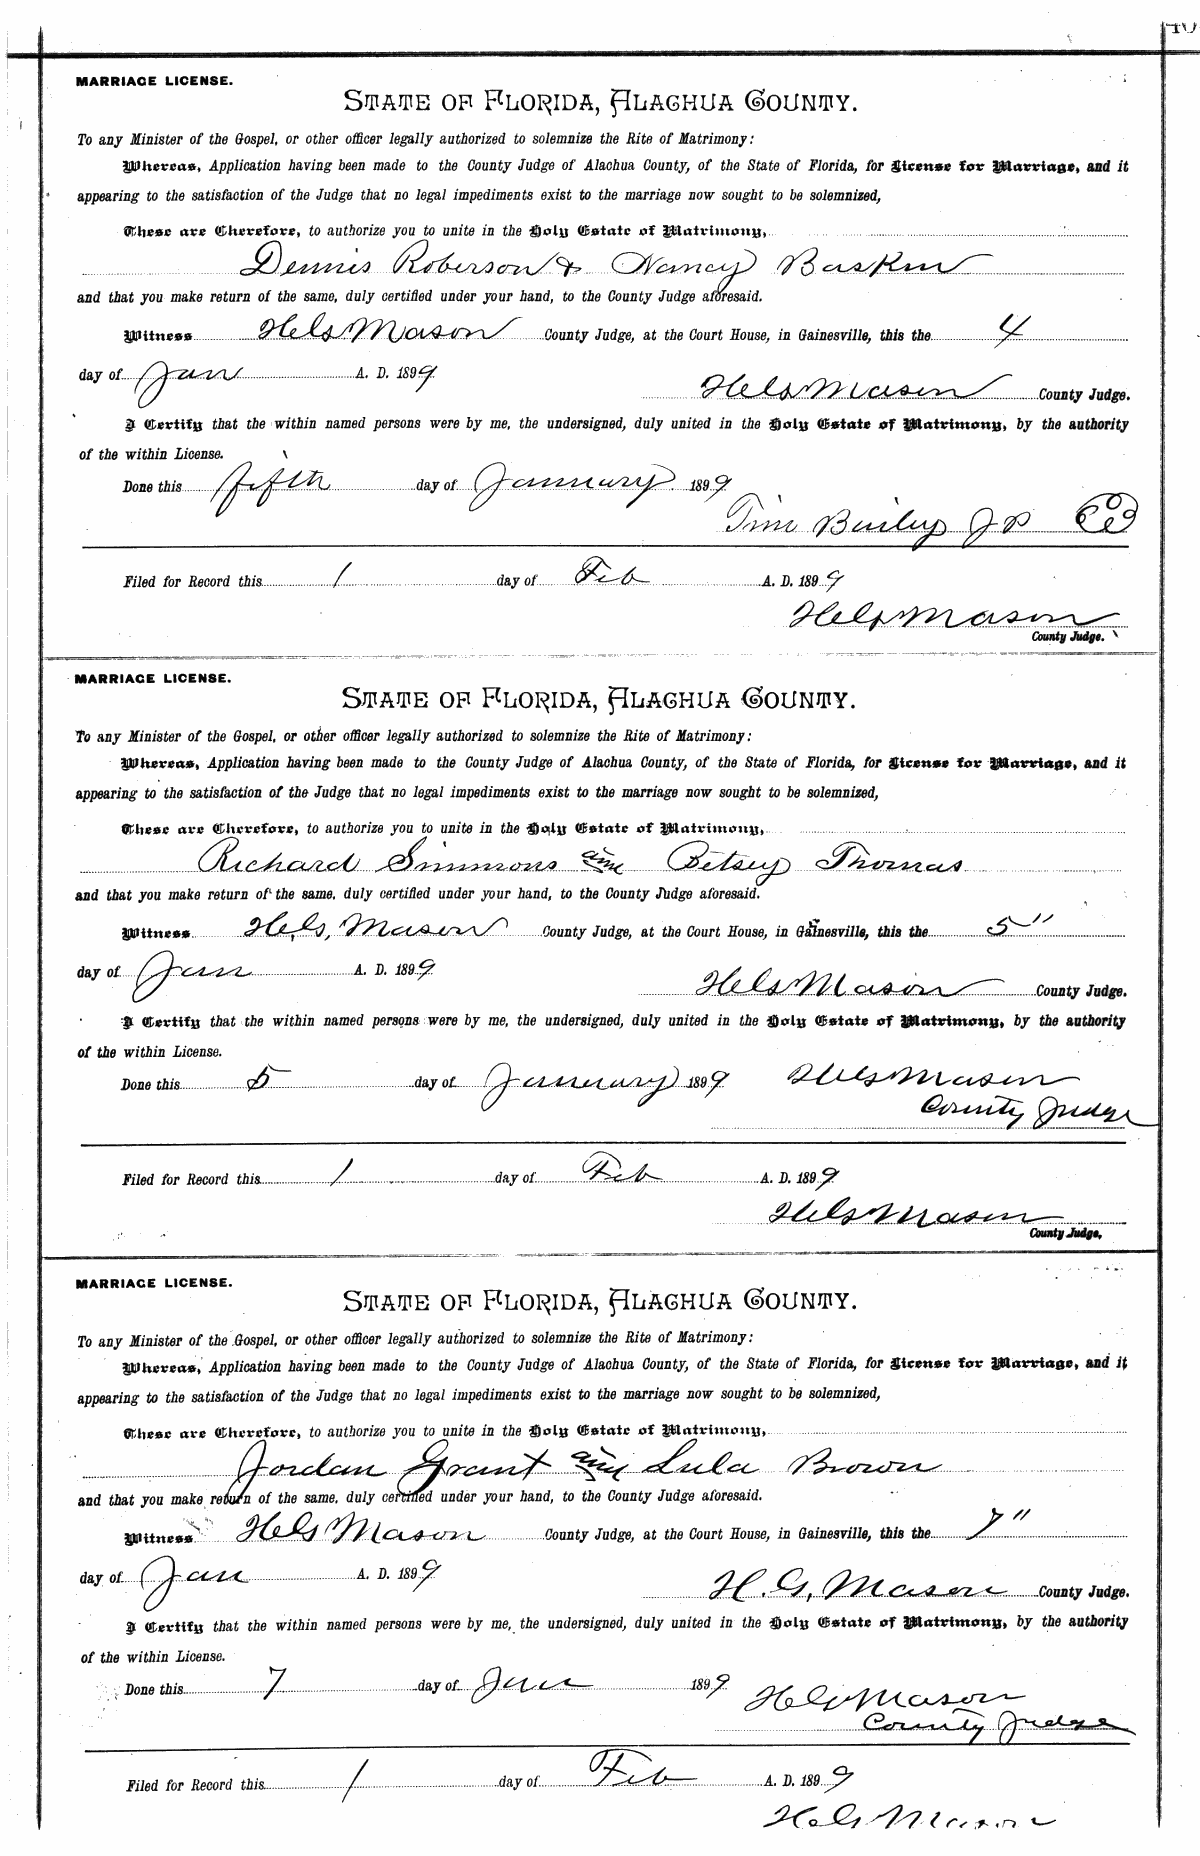 40
MARRIAGE LICENSE.
STATE OF FLORIDA, ALACHUA COUNTY.
To any Minister of the Gospel, or other officer legally authorized to solemnize the Rite of Matrimony:
Whereas, Application having been made to the County Judge of Alachua County, of the State of Florida, for License for Marriage, and it
appearing to the satisfaction of the Judge that no legal impediments exist to the marriage now sought to be solemnized,
These are Therefore, to authorize you to unite in the Holy Estate of Matrimony,
Dennis Roberson & Nancy Baskin
and that you make return of the same, duly certified under your hand, to the County Judge aforesaid.
Witness H G Mason County Judge, at the Court House, in Gainesville, this the 4
day of Jan A. D. 1899
H G Mason County Judge.
I Certify that the within named persons were by me, the undersigned, duly united in the Holy Estate of Matrimony, by the authority
of the within License.
Done this fifth day of January 1899
Tim Bailey J P
Filed for Record this 1 day of Feb A. D. 1899
H G Mason
County Judge.
MARRIAGE LICENSE.
STATE OF FLORIDA, ALACHUA COUNTY.
To any Minister of the Gospel, or other officer legally authorized to solemnize the Rite of Matrimony:
Whereas, Application having been made to the County Judge of Alachua County, of the State of Florida, for License for Marriage, and it
appearing to the satisfaction of the Judge that no legal impediments exist to the marriage now sought to be solemnized,
These are Therefore, to authorize you to unite in the Holy Estate of Matrimony,
Richard Simmons and Betsey Thomas
and that you make return of the same, duly certified under your hand, to the County Judge aforesaid.
Witness H. G. Mason County Judge, at the Court House, in Gainesville, this the 5"
day of Jan A. D. 1899
H G Mason County Judge.
I Certify that the within named persons were by me, the undersigned, duly united in the Holy Estate of Matrimony, by the authority
of the within License.
Done this 5 day of January 1899 H G Mason
County Judge
Filed for Record this 1 day of Feb A. D. 1899
H G Mason
County Judge.
MARRIAGE LICENSE.
STATE OF FLORIDA, ALACHUA COUNTY.
To any Minister of the Gospel, or other officer legally authorized to solemnize the Rite of Matrimony:
Whereas, Application having been made to the County Judge of Alachua County, of the State of Florida, for License for Marriage, and it
appearing to the satisfaction of the Judge that no legal impediments exist to the marriage now sought to be solemnized,
These are Therefore, to authorize you to unite in the Holy Estate of Matrimony,
Jordan Grant and Lula Brown
and that you make return of the same, duly certified under your hand, to the County Judge aforesaid.
Witness H G Mason County Judge, at the Court House, in Gainesville, this the 7"
day of Jan A. D. 1899
H. G. Mason County Judge.
I Certify that the within named persons were by me, the undersigned, duly united in the Holy Estate of Matrimony, by the authority
of the within License.
Done this 7 day of Jan 1899 H G Mason
County Judge
Filed for Record this 1 day of Feb A. D. 1899
H G Mason